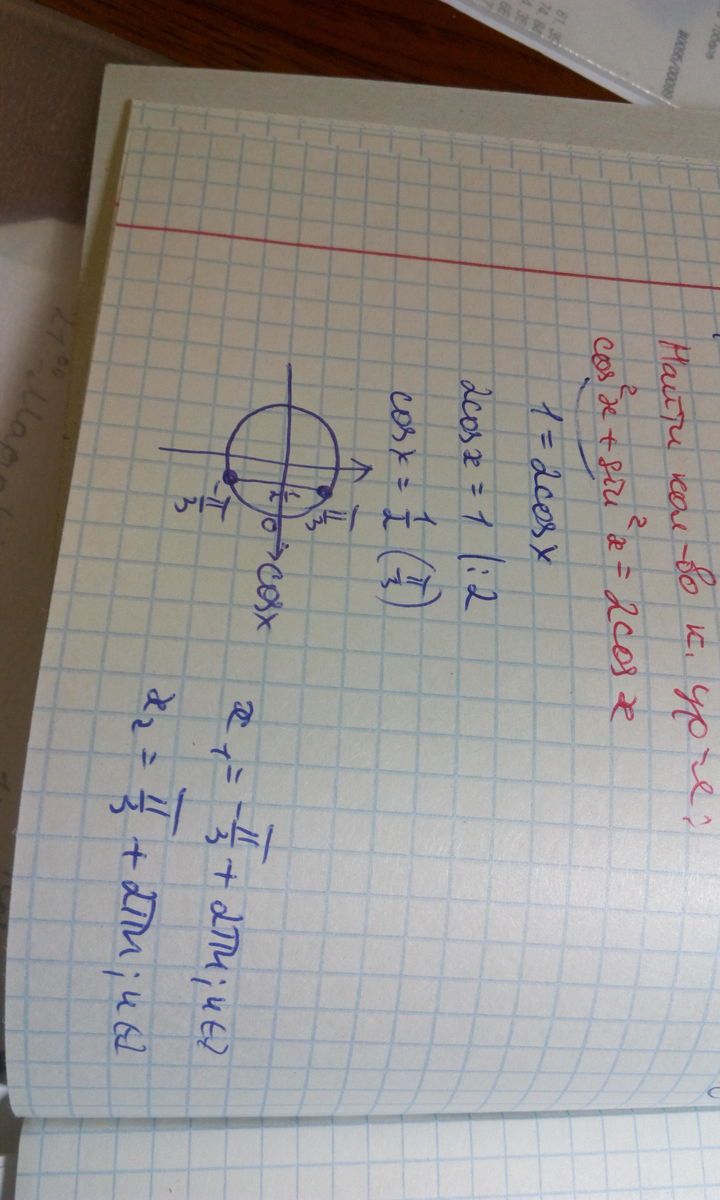 Найти кол-во к. ур-я:
cos²x + sin²x = 2cos x
1 = 2cosx
2cosx = 1 |:2
cosx = 1/2 (π/3)
π/3
1/2 0 cosx
-π/3
x₁ = -π/3 + 2πn; n∈Z
x₂ = π/3 + 2πn; n∈Z